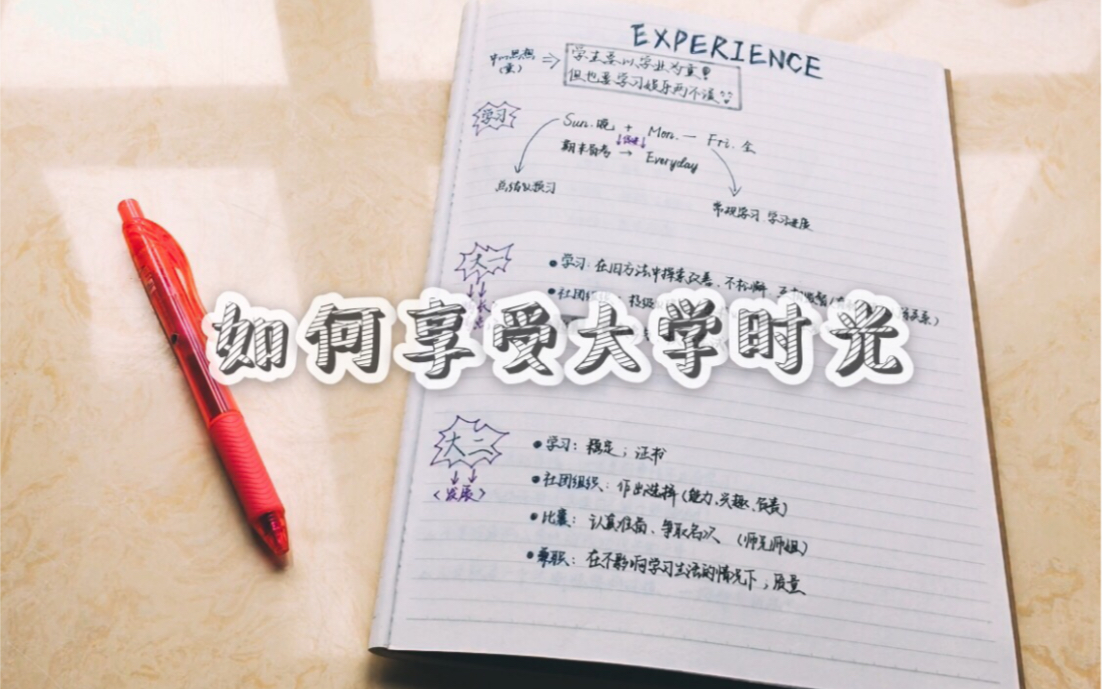 EXPERIENCE
中心思想
(重)
学生要以学业为重
但也要学习娱乐两不误
学习
Sun.晚 + Mon. — Fri. 全
期末备考 → Everyday
总结及预习
常规学习 学习进度
● 学习：在旧方法中探索改善、不松懈
● 社团组织：积极
如何享受大学时光
大二
<发展>
● 学习：稳定；证书
● 社团组织：作出选择（能力、兴趣、负责）
● 比赛：认真准备、争取名次 （师兄师姐）
● 兼职：在不影响学习生活的情况下，质量